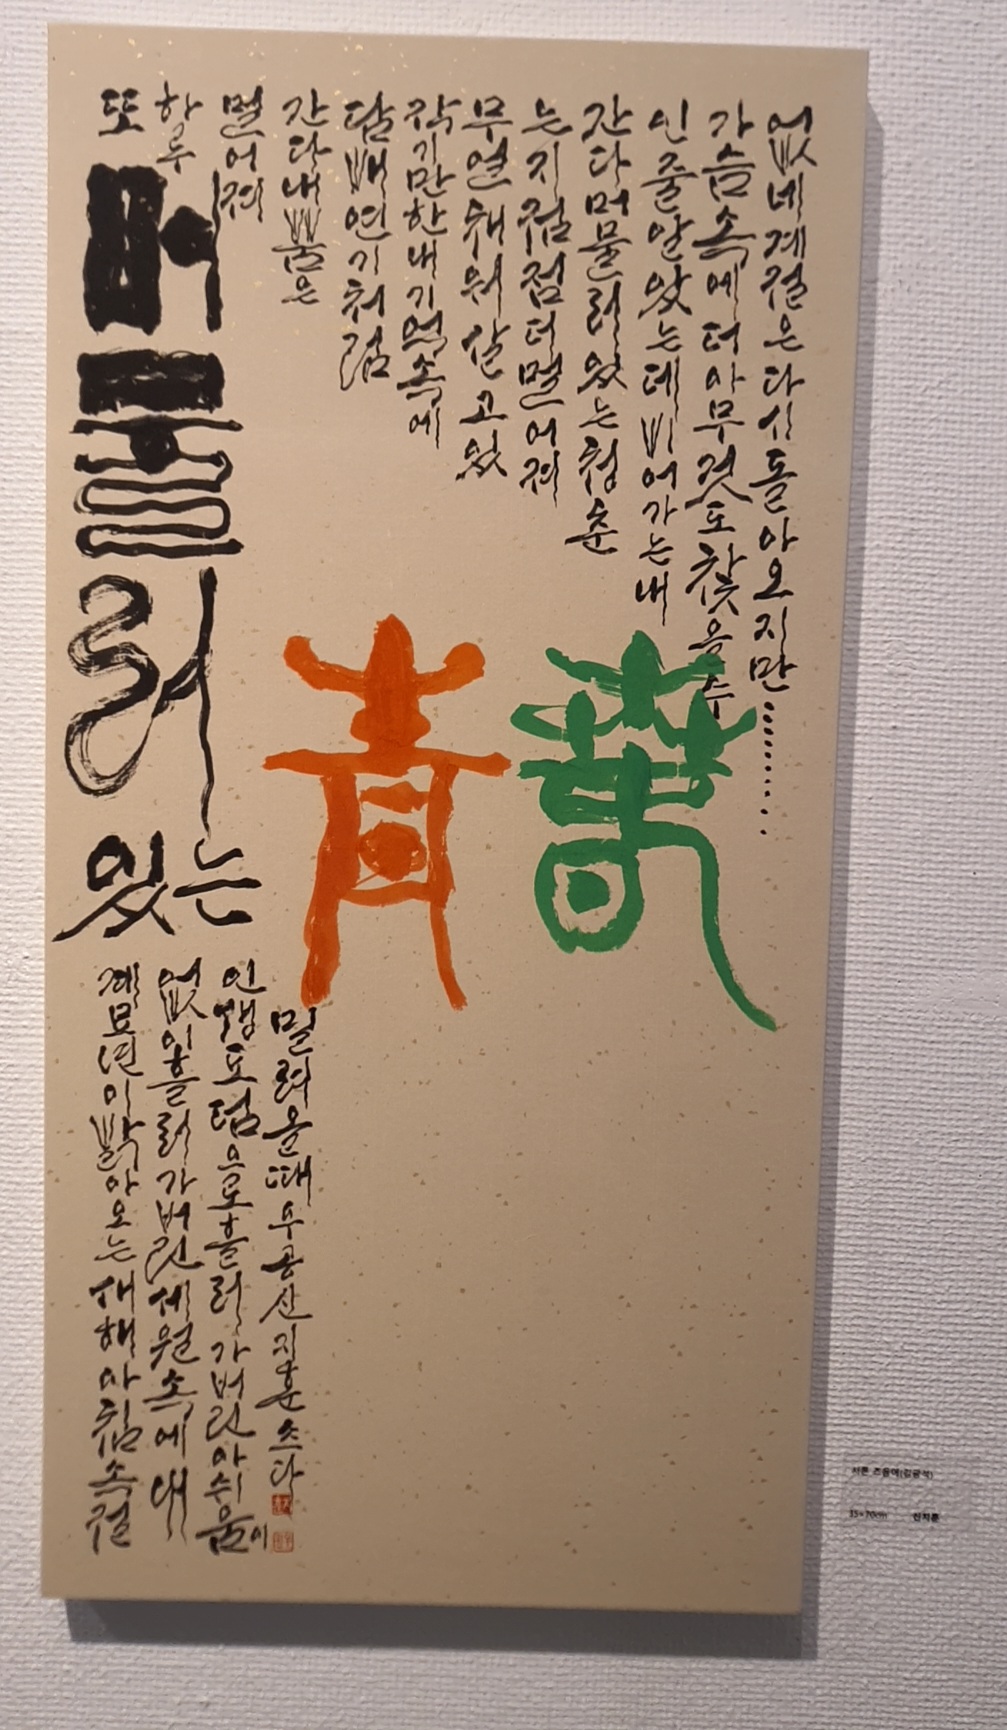 또
하루
멀어져
간다내뿜은
담배연기처럼
작기만한내기억속에
무얼채워살고있
는지점점더멀어져
간다머물러있는청춘
인줄알았는데비어가는내
가슴속에더아무것도찾을수
없네계절은다시돌아오지만..........
머물러있는
靑春
계묘년이밝아오는새해아침속절
없이흘러가버린세월속에내
인생도덤으로흘러가버린아쉬움이
밀려올때우공신지훈쓰다
서른 즈음에(김광석)
35×70cm 신지훈